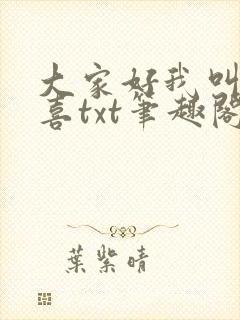 大家好我叫
喜txt筆趣閣
葉紫晴